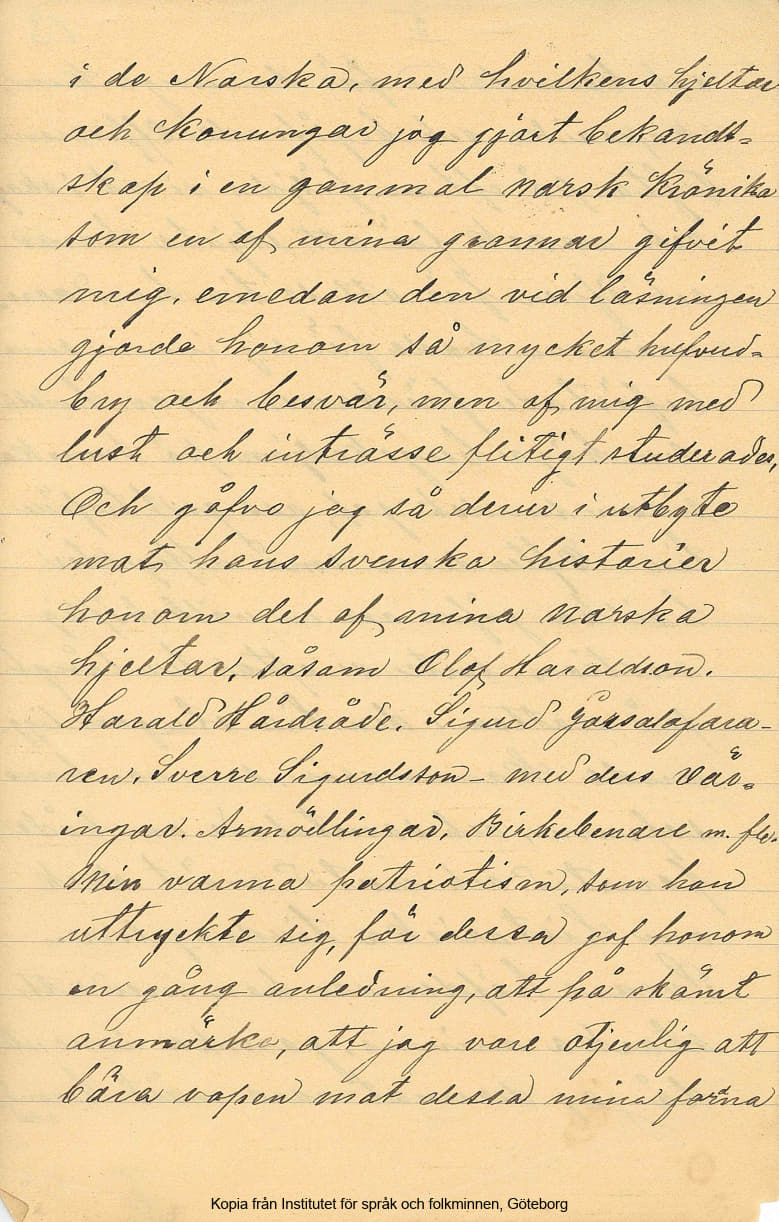 i de Norska, med hvilkens hjeltar
och Konungar jag gjort bekandt-
skap i en gammal norsk Krönika
som en af mina grannar gifvit
mig, emedan den vid läsningen
gjorde honom så mycket hufvud-
bry och besvär, men af mig med
lust och inträsse flitigt studerades,
Och gåfvo jag så derver i utbyte
mot hans svenska historier
honom del af mina norska
hjeltar, såsom Olof Haraldson.
Harald Hårdråde. Sigurd Jorsalafara-
ren, Sverre Sigurdsson - med ders Vär-
ingar. Armödlingar, Birkebenare m. fle.
Min varma patriotism, som han
uttryckte sig, för dessa gaf honom
en gång anledning, att på skämt
anmärka, att jag vore otjenlig att
bära vapen mot dessa mina fordna
Kopia från Institutet för språk och folkminnen, Göteborg